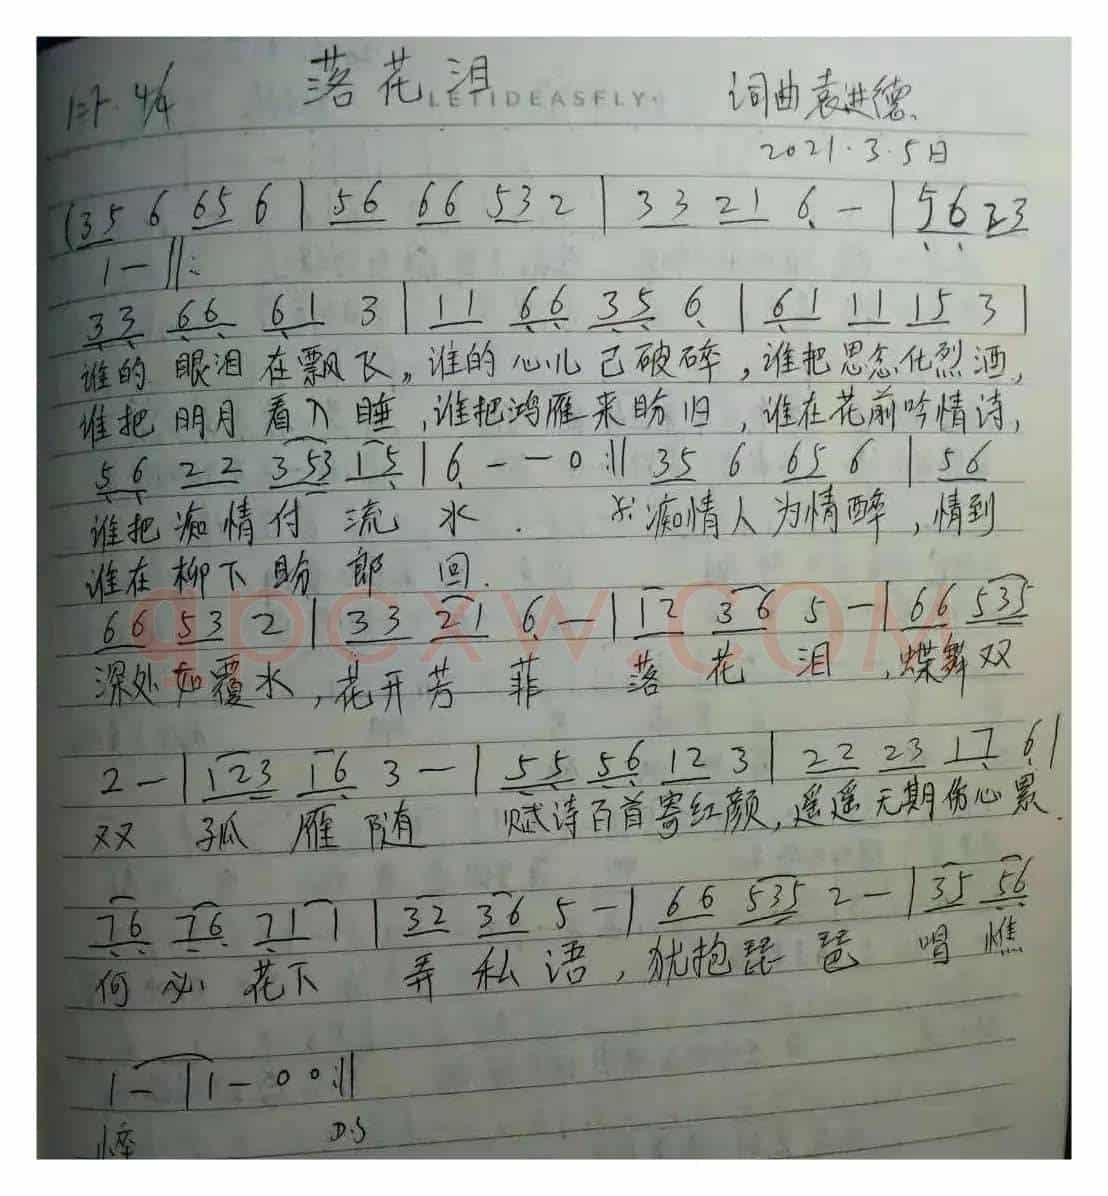 落花泪
LETIDEASFLY
1=F 4/4
词曲袁进德
2021.3.5日
(35 6 65 6 | 56 66 532 2 | 33 21 6 — | 56 23
1 — ‖:
33 66 61 3 | 11 66 35 6 | 61 11 15 3 |
谁的 眼泪 在飘飞，谁的 心儿 已破碎，谁把 思念化烈酒，
谁把 明月 看入 睡，谁把鸿雁来盼归，谁在花前吟情诗，
56 22 353 15 | 6 — — 0 :‖ 35 6 65 6 | 56
谁把 痴情付 流 水. 痴情人 为情醉，情到
谁在 柳下 盼 郎 回.
qpcxw.com
66 53 2 | 33 21 6 — | 12 36 5 — | 66 535
深处如覆水，花开芳 菲 落 花 泪，蝶舞双
2 — | 123 16 3 — | 55 56 12 3 | 22 23 17 6 |
双 孤 雁 随 赋诗百首寄红颜，遥遥无期伤心累.
76 76 71 1 | 32 36 5 — | 66 535 2 — | 35 56
何 必 花下 弄 私 语，犹抱琵 琶 唱 憔
1 — | 1 — 0 0 :‖
悴 D.S